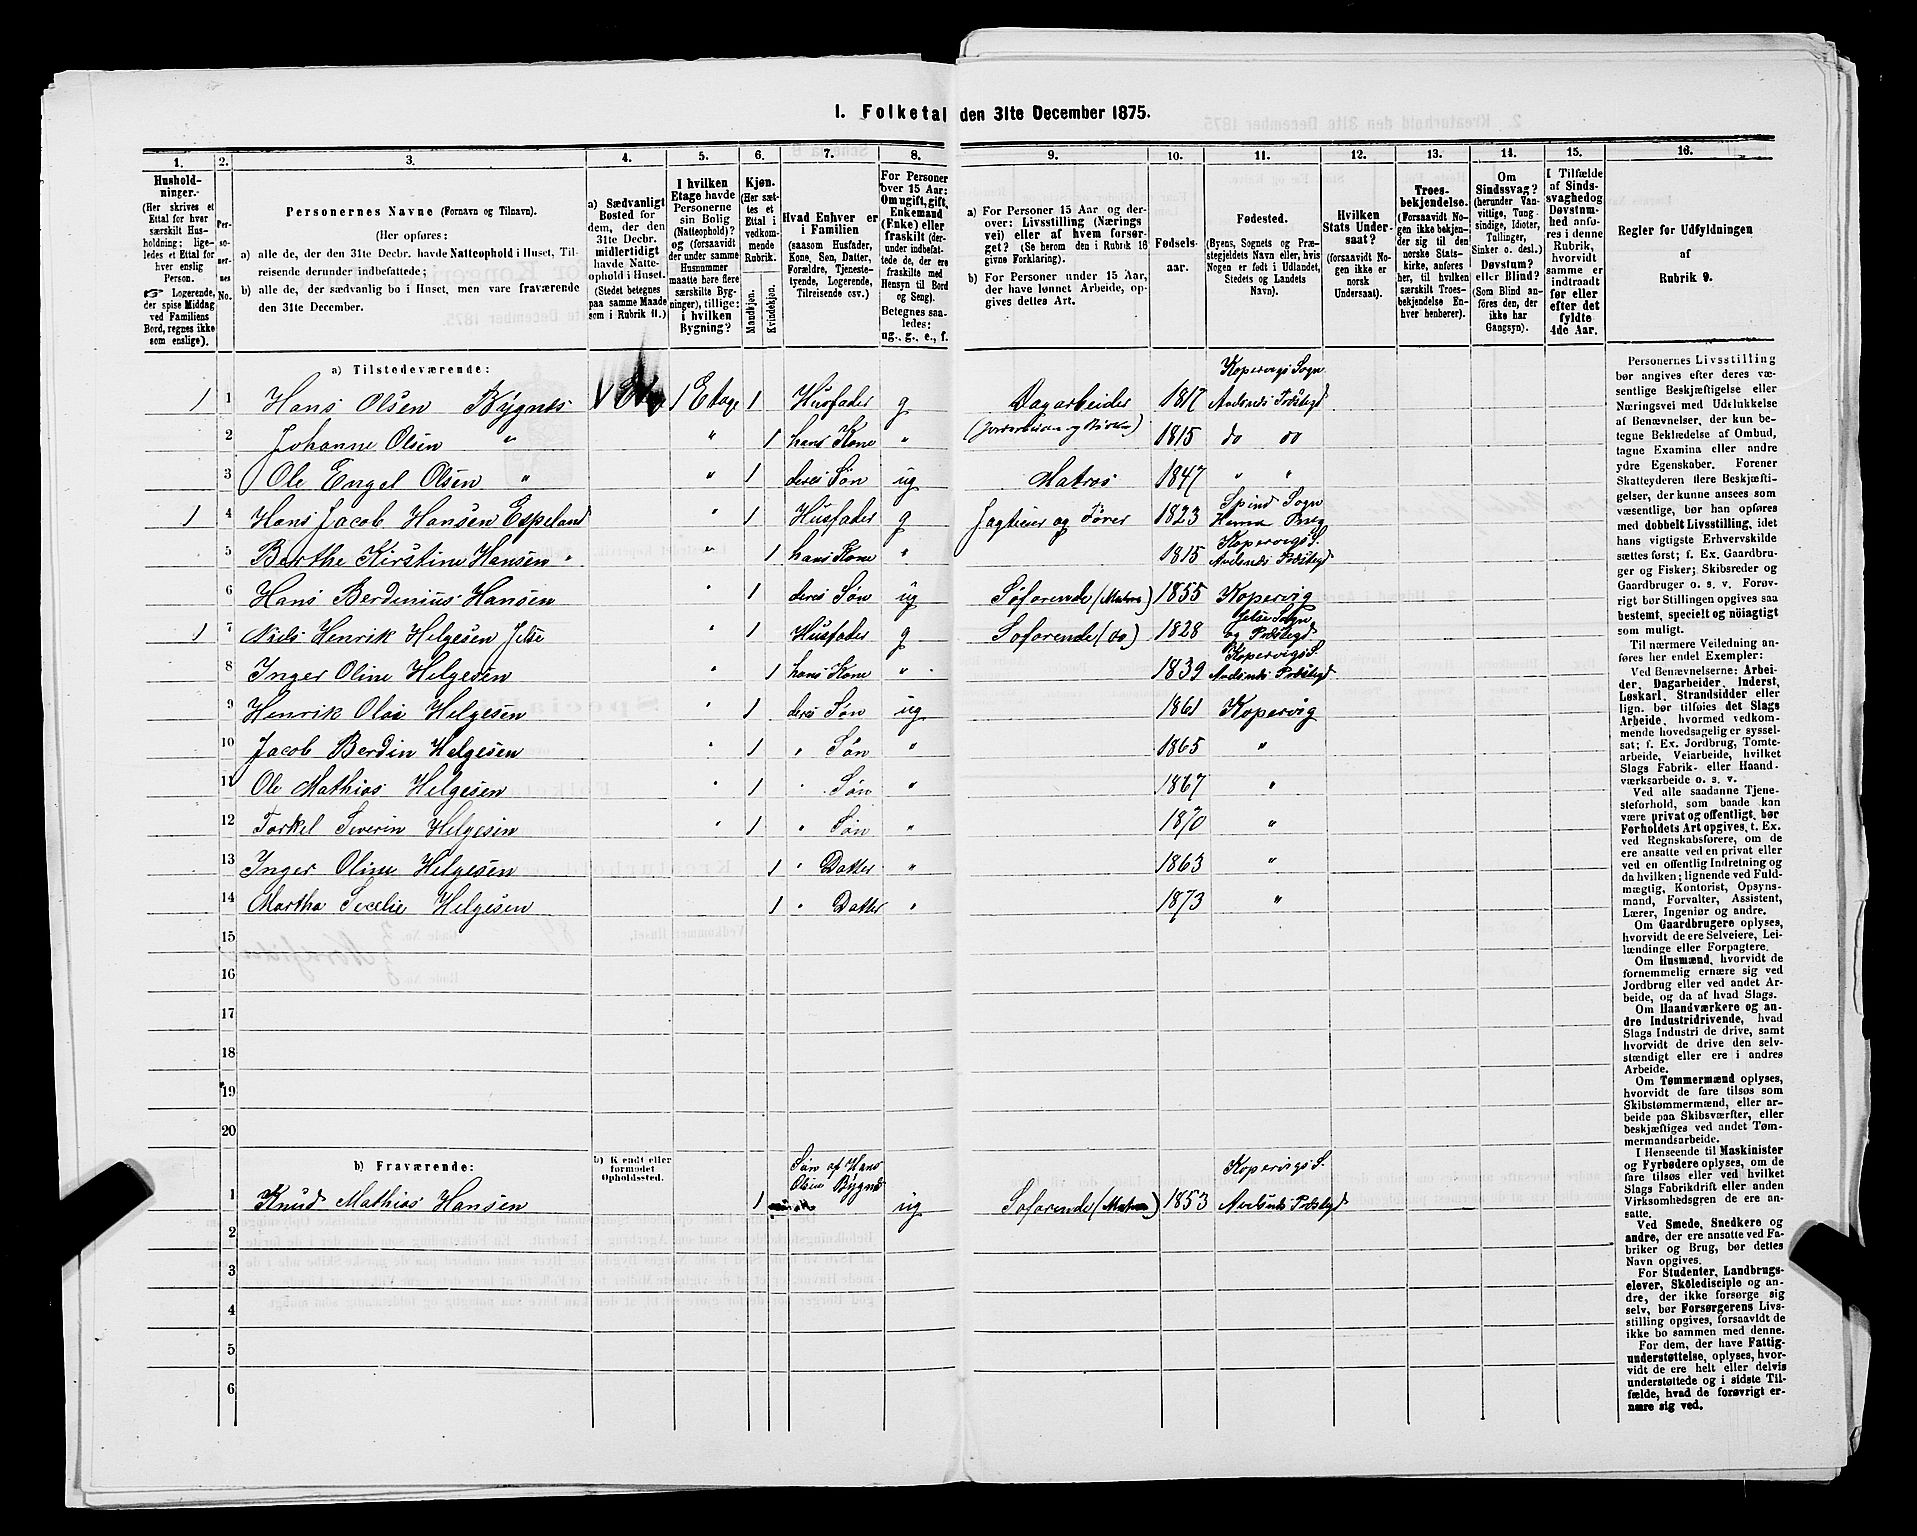 I. Folketal den 31te December 1875.
1. 2. 3. 4. 5. 6. 7. 8. 9. 10. 11. 12. 13. 14. 15. 16.
Hushold-
ninger.
(Her skrives et
Ettal for hver
særskilt Hus-
holdning; lige-
ledes et Ettal for
hver enslig
Person.
Logerende,
der spise Middag
ved Familiens
Bord, regnes ikke
som enslige).
Per-
so-
ner-
nes
No.
Personernes Navne (Fornavn og Tilnavn).
(Her opføres:
a) alle de, der den 31te Decbr. havde Natteophold i Huset, Til-
reisende derunder indbefattede;
b) alle de, der sædvanlig bo i Huset, men vare fraværende
den 31te December.
a) Sædvanligt
Bosted for
dem, der den
31te Decbr.
midlertidigt
havde Natte-
ophold i Huset.
(Stedet betegnes
paa samme Maade
som i Rubrik 11.)
I hvilken
Etage havde
Personerne
sin Bolig
(Natteophold)?
og (forsaavidt
der under samme
Husnummer
maatte høre flere
særskilte Byg-
ninger), tillige:
i hvilken
Bygning?
Kjøn.
(Her sæt-
tes et
Ettal i
vedkom-
mende
Rubrik.
Mandkjøn.
Kvindekjøn.
Hvad Enhver er
i Familien
(saasom Husfader,
Kone, Søn, Datter,
Forældre, Tjeneste-
tyende, Logerende,
Tilreisende osv.)
For Personer
over 15 Aar:
Om ugift, gift,
Enkemand
(Enke) eller
fraskilt (der-
under indbefat-
tede de, der ere
fraskilte med
Hensyn til Bord
og Seng).
Betegnes saa-
ledes:
ug., g., e., f.
a) For Personer 15 Aar og der-
over: Livsstilling (Nærings-
vei) eller af hvem forsør-
get? (Se herom den i Rubrik 16
givne Forklaring).
b) For Personer under 15 Aar,
der have lønnet Arbeide, op-
gives dettes Art.
Fødsels-
aar.
Fødested.
(Byens, Sognets og Præ-
stegjeldets Navn eller, hvis
Nogen er født i Udlandet,
Stedets og Landets
Navn).
Hvilken
Stats Under-
saat?
(forsaavidt No-
gen ikke er
norsk
Undersaat).
Troes-
bekjendelse.
(Forsaavidt No-
gen ikke bekjen-
der sig til den
norske Stats-
kirke, anføres
her, til hvilken
særskilt Troes-
bekjendelse En-
hver henhører).
Om
Sindssvag?
(herunder Van-
vittige, Tung-
sindige, Idioter,
Tullinger,
Sinker o. desl.)
Døvstum?
eller Blind?
(Som Blind an-
føres den, der
ikke har
Gangsyn).
I Tilfælde
af Sinds-
svaghed og
Døvstum-
hed anfø-
res i denne
Rubrik,
hvorvidt
samme er
indtraadt
før eller
efter det
fyldte
4de Aar.
Regler for Udfyldningen
af
Rubrik 9.
a) Tilstedeværende:
1 1 Hans Olsen Bygnes 1 Etage 1 Husfader g Dagarbeider 1817 Kopervigs Sogn
2 Johanne Olsen " " 1 hans Kone " 1815 do do
3 Ole Engel Olsen " " 1 deres Søn ug Matros 1847 " "
1 4 Hans Jacob Hansen Espeland " 1 Husfader g Jagteier og Fører 1823 Spind Sogn
5 Berthe Kirstine Hansen " " 1 hans Kone " 1815 Kopervigs S.
6 Hans Berdinius Hansen " 1 deres Søn ug Søfarende (Matros) 1855 Kopervig
1 7 Niels Henrik Helgesen Jelse " 1 Husfader g Søfarende (do) 1828 Jelse Sogn og Præstegd
8 Inger Oline Helgesen " 1 hans Kone " 1839 Kopervigs S.
9 Henrik Olai Helgesen " 1 deres Søn ug 1861 Kopervig
10 Jacob Berdin Helgesen " 1 " Søn " 1865 "
11 Ole Mathias Helgesen " 1 " Søn " 1867 "
12 Torkel Severin Helgesen " 1 " Søn " 1870 "
13 Inger Oline Helgesen 1 " Datter " 1863 "
14 Martha Secelie Helgesen 1 " Datter " 1873 "
15
16
17
18
19
20
b) Fraværende:
b) Kjendt eller
formodet
Opholdssted.
1 Knud Mathias Hansen 1 Søn af Hans Olsen Bygnes ug Søfarende (Matros) 1853 Kopervigs S.
2
3
4
5
6
Personernes Livsstilling
bør angives efter deres væ-
sentlige Beskjæftigelse eller
Næringsvei med Udelukkelse
af Benævnelser, der kun be-
tegne Beklædelse af Ombud,
tagne Examina eller andre
ydre Egenskaber. Forener
Skatteyderen flere Beskjæfti-
gelser, der kunne ansees som
væsentlige, bør han opføres
med dobbelt Livsstilling, idet
hans vigtigste Erhvervskilde
sættes først; f. Ex. Gaardbru-
ger og Fisker; Skibsreder og
Gaardbruger o. s. v. Forøv-
rigt bør Stillingen opgives saa
bestemt, specielt og nøiagtigt
som muligt.
Til nærmere Veiledning an-
føres her endel Exempler:
Ved Benævnelserne: Arbei-
der, Dagarbeider, Inderst,
Løskarl, Strandsidder eller
lign. bør tilføies det Slags
Arbeide, hvormed vedkom-
mende hovedsagelig er syssel-
sat; f. Ex. Jordbrug, Tomte-
arbeide, Veiarbeide, hvilket
Slags Fabrik- eller Haand-
værksarbeide o. s. v.
Ved alle saadanne Tjene-
steforhold, som baade kan
være privat og offentligt, bør
Forholdets Art opgives, t. Ex.
ved Regnskabsførere, om de
ere ansatte ved en privat eller
ved en offentlig Indretning og
da hvilken; lignende ved Fuld-
mægtig, Kontorist, Opsyns-
mand, Forvalter, Assistent,
Lærer, Ingeniør og andre.
Om Gaardbrugere oplyses,
hvorvidt de ere Selveiere, Lei-
lændinge eller Forpagtere.
Om Husmænd, hvorvidt de
fornemmelig ernære sig ved
Jordbrug eller ved andet Ar-
beide, og da af hvad Slags.
Om Haandværkere og an-
dre Industridrivende, hvad
Slags Industri de drive, samt
hvorvidt de drive den selv-
stændigt eller ere i andres
Arbeide.
Om Tømmermænd oplyses,
hvorvidt de fare tilsøs som
Skibstømmermænd, eller ar-
beide paa Skibsværfter, eller
beskjæftiges ved andet Tøm-
mermandsarbeide.
I Henseende til Maskinister
og Fyrbødere oplyses, om de
fare tilsøs eller ved hvilket
Slags Fabrikdrift eller anden
Virksomhedsgren de ere an-
satte.
Ved Smede, Snedkere og
andre, der ere ansatte ved Fa-
briker og Brug, bør dettes
Navn opgives.
For Studenter, Landbrugs-
elever, Skoledisciple og an-
dre, der ikke forsørge sig
selv, bør Forsørgerens Livs-
stilling opgives, forsaavidt de
ikke bo sammen med denne.
For dem, der have Fattig-
understøttelse, oplyses, hvor-
vidt de ere helt eller delvis
understøttede og i sidste Til-
fælde, hvad de forøvrigt er-
nære sig ved.